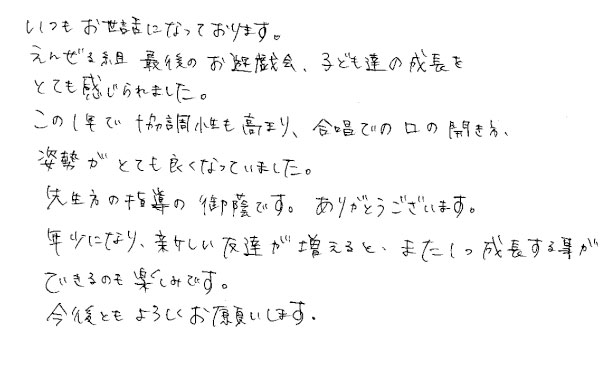 いつもお世話になっております。
えんぜる組 最後のお遊戯会、子ども達の成長を
とても感じられました。
この1年で協調性も高まり、合唱での口の開き方、
姿勢がとても良くなっていました。
先生方の指導の御蔭です。ありがとうございます。
年少になり、新しい友達が増えると、また1つ成長する事が
できるのも楽しみです。
今後ともよろしくお願いします.